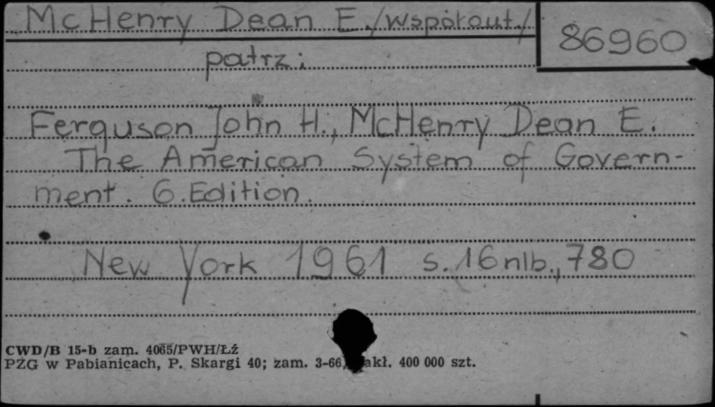 McHenry Dean E. /współaut./
86960
patrz:
Ferguson John H., McHenry Dean E.
The American System of Govern-
ment. 6. Edition.
New York 1961 s. 16 nlb., 780
CWD/B 15-b zam. 4065/PWH/Łź
PZG w Pabianicach, P. Skargi 40; zam. 3-66, akł. 400 000 szt.